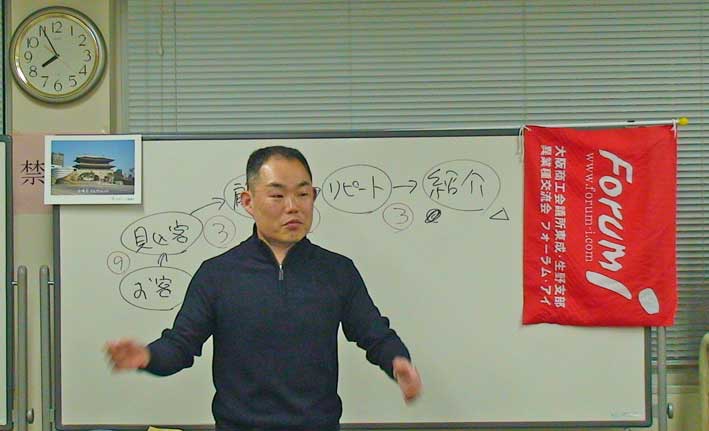 12
1
2
3
4
5
6
7
8
9
10
11
禁
見込客
③
⑨
お客
リピート
→
紹介
③
△
Forum i
www.forum-i.com
大阪商工会議所東成・生野支部
異業種交流会 フォーラム・アイ